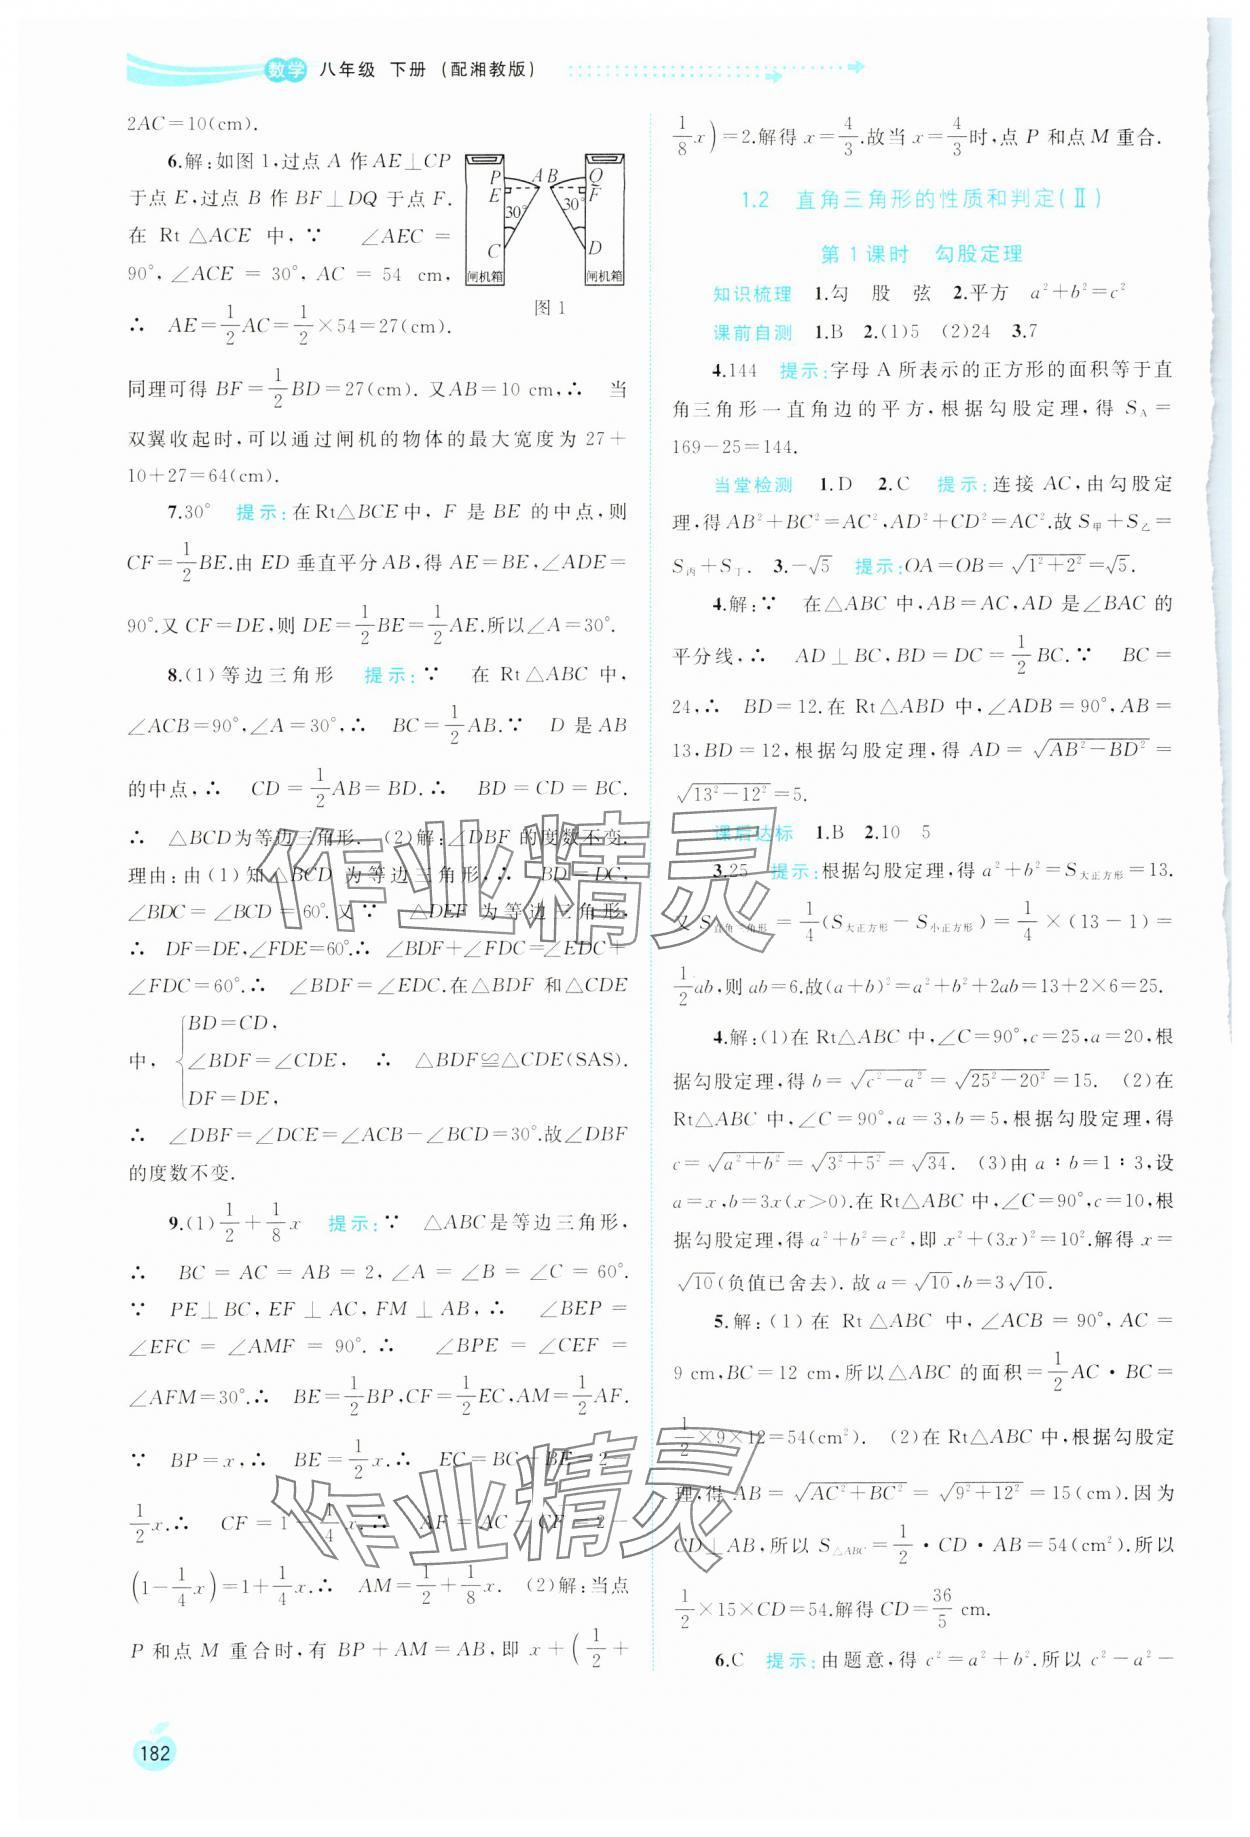 数学 八年级 下册 (配湘教版)
2AC=10(cm).
6.解:如图1,过点 A 作 AE⊥CP
于点 E,过点 B 作 BF⊥DQ 于点 F.
在 Rt△ACE 中,∵ ∠AEC=
90°,∠ACE=30°,AC=54 cm,
∴ AE=1/2AC=1/2×54=27(cm).
P
E
C
A B
Q
F
D
30°
30°
闸机箱
闸机箱
图1
同理可得 BF=1/2BD=27(cm).又AB=10 cm,∴ 当
双翼收起时,可以通过闸机的物体的最大宽度为 27+
10+27=64(cm).
7.30° 提示:在Rt△BCE中,F 是 BE 的中点,则
CF=1/2BE.由 ED 垂直平分 AB,得 AE=BE,∠ADE=
90°.又 CF=DE,则 DE=1/2BE=1/2AE.所以∠A=30°.
8.(1)等边三角形 提示:∵ 在 Rt△ABC 中,
∠ACB=90°,∠A=30°,∴ BC=1/2AB.∵ D 是 AB
的中点,∴ CD=1/2AB=BD.∴ BD=CD=BC.
∴ △BCD为等边三角形. (2)解:∠DBF 的度数不变.
理由:由(1)知△BCD 为等边三角形,∴ BD=DC,
∠BDC=∠BCD=60°.又∵ △DEF 为等边三角形,
∴ DF=DE,∠FDE=60°.∴ ∠BDF+∠FDC=∠EDC+
∠FDC=60°.∴ ∠BDF=∠EDC.在△BDF 和△CDE
中,{BD=CD,
∠BDF=∠CDE, ∴ △BDF≌△CDE(SAS).
DF=DE,
∴ ∠DBF=∠DCE=∠ACB-∠BCD=30°.故∠DBF
的度数不变.
9.(1)1/2+1/8x 提示:∵ △ABC是等边三角形,
∴ BC=AC=AB=2,∠A=∠B=∠C=60°.
∵ PE⊥BC,EF⊥AC,FM⊥AB,∴ ∠BEP=
∠EFC=∠AMF=90°.∴ ∠BPE=∠CEF=
∠AFM=30°.∴ BE=1/2BP,CF=1/2EC,AM=1/2AF.
∵ BP=x,∴ BE=1/2x.∴ EC=BC-BE=2-
1/2x.∴ CF=1-1/4x.∴ AF=AC-CF=2-
(1-1/4x)=1+1/4x.∴ AM=1/2+1/8x. (2)解:当点
P 和点 M 重合时,有 BP+AM=AB,即 x+(1/2+
1/8x)=2.解得 x=4/3.故当 x=4/3时,点 P 和点 M 重合.
1.2 直角三角形的性质和判定(Ⅱ)
第1课时 勾股定理
知识梳理 1.勾 股 弦 2.平方 a²+b²=c²
课前自测 1.B 2.(1)5 (2)24 3.7
4.144 提示:字母 A 所表示的正方形的面积等于直
角三角形一直角边的平方,根据勾股定理,得 S_A=
169-25=144.
当堂检测 1.D 2.C 提示:连接 AC,由勾股定
理,得 AB²+BC²=AC²,AD²+CD²=AC².故 S甲+S乙=
S丙+S丁. 3.-√5 提示:OA=OB=√(1²+2²)=√5.
4.解:∵ 在△ABC 中,AB=AC,AD 是∠BAC 的
平分线,∴ AD⊥BC,BD=DC=1/2BC.∵ BC=
24,∴ BD=12.在 Rt△ABD 中,∠ADB=90°,AB=
13,BD=12,根据勾股定理,得 AD=√(AB²-BD²)=
√(13²-12²)=5.
课后达标 1.B 2.10 5
3.25 提示:根据勾股定理,得 a²+b²=S大正方形=13.
又 S直角三角形=1/4(S大正方形-S小正方形)=1/4×(13-1)=
1/2ab,则 ab=6.故(a+b)²=a²+b²+2ab=13+2×6=25.
4.解:(1)在 Rt△ABC 中,∠C=90°,c=25,a=20,根
据勾股定理,得 b=√(c²-a²)=√(25²-20²)=15. (2)在
Rt△ABC 中,∠C=90°,a=3,b=5,根据勾股定理,得
c=√(a²+b²)=√(3²+5²)=√34. (3)由 a∶b=1∶3,设
a=x,b=3x(x>0).在 Rt△ABC 中,∠C=90°,c=10,根
据勾股定理,得 a²+b²=c²,即 x²+(3x)²=10².解得 x=
√10(负值已舍去).故 a=√10,b=3√10.
5.解:(1)在 Rt△ABC 中,∠ACB=90°,AC=
9 cm,BC=12 cm,所以△ABC 的面积=1/2AC·BC=
1/2×9×12=54(cm²). (2)在Rt△ABC 中,根据勾股定
理,得 AB=√(AC²+BC²)=√(9²+12²)=15(cm).因为
CD⊥AB,所以 S△ABC=1/2·CD·AB=54(cm²).所以
1/2×15×CD=54.解得CD=36/5 cm.
6.C 提示:由题意,得 c²=a²+b².所以 c²-a²-
182
作业精灵
作业精灵